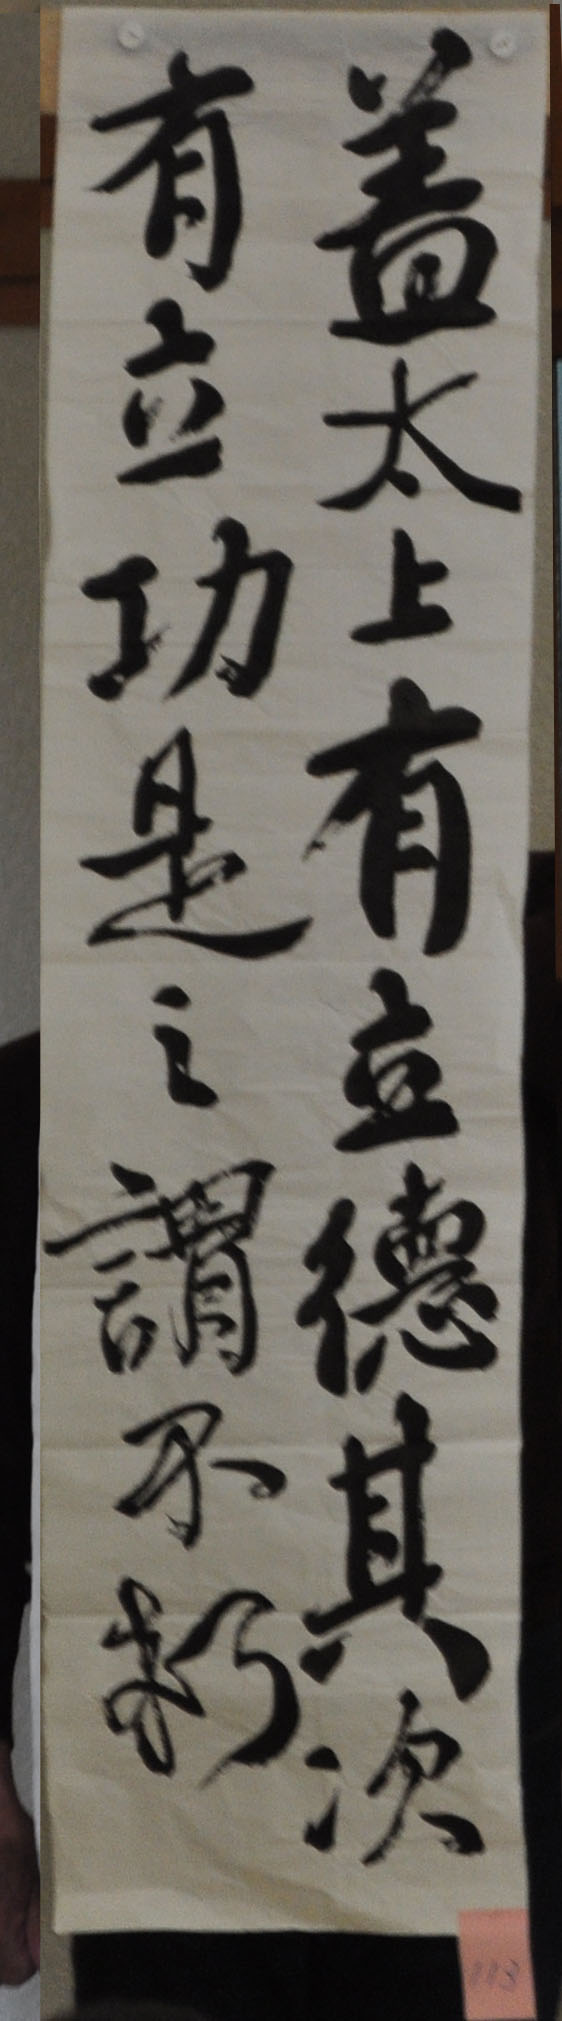 蓋太上有立德其次
有立功是之謂不朽
113